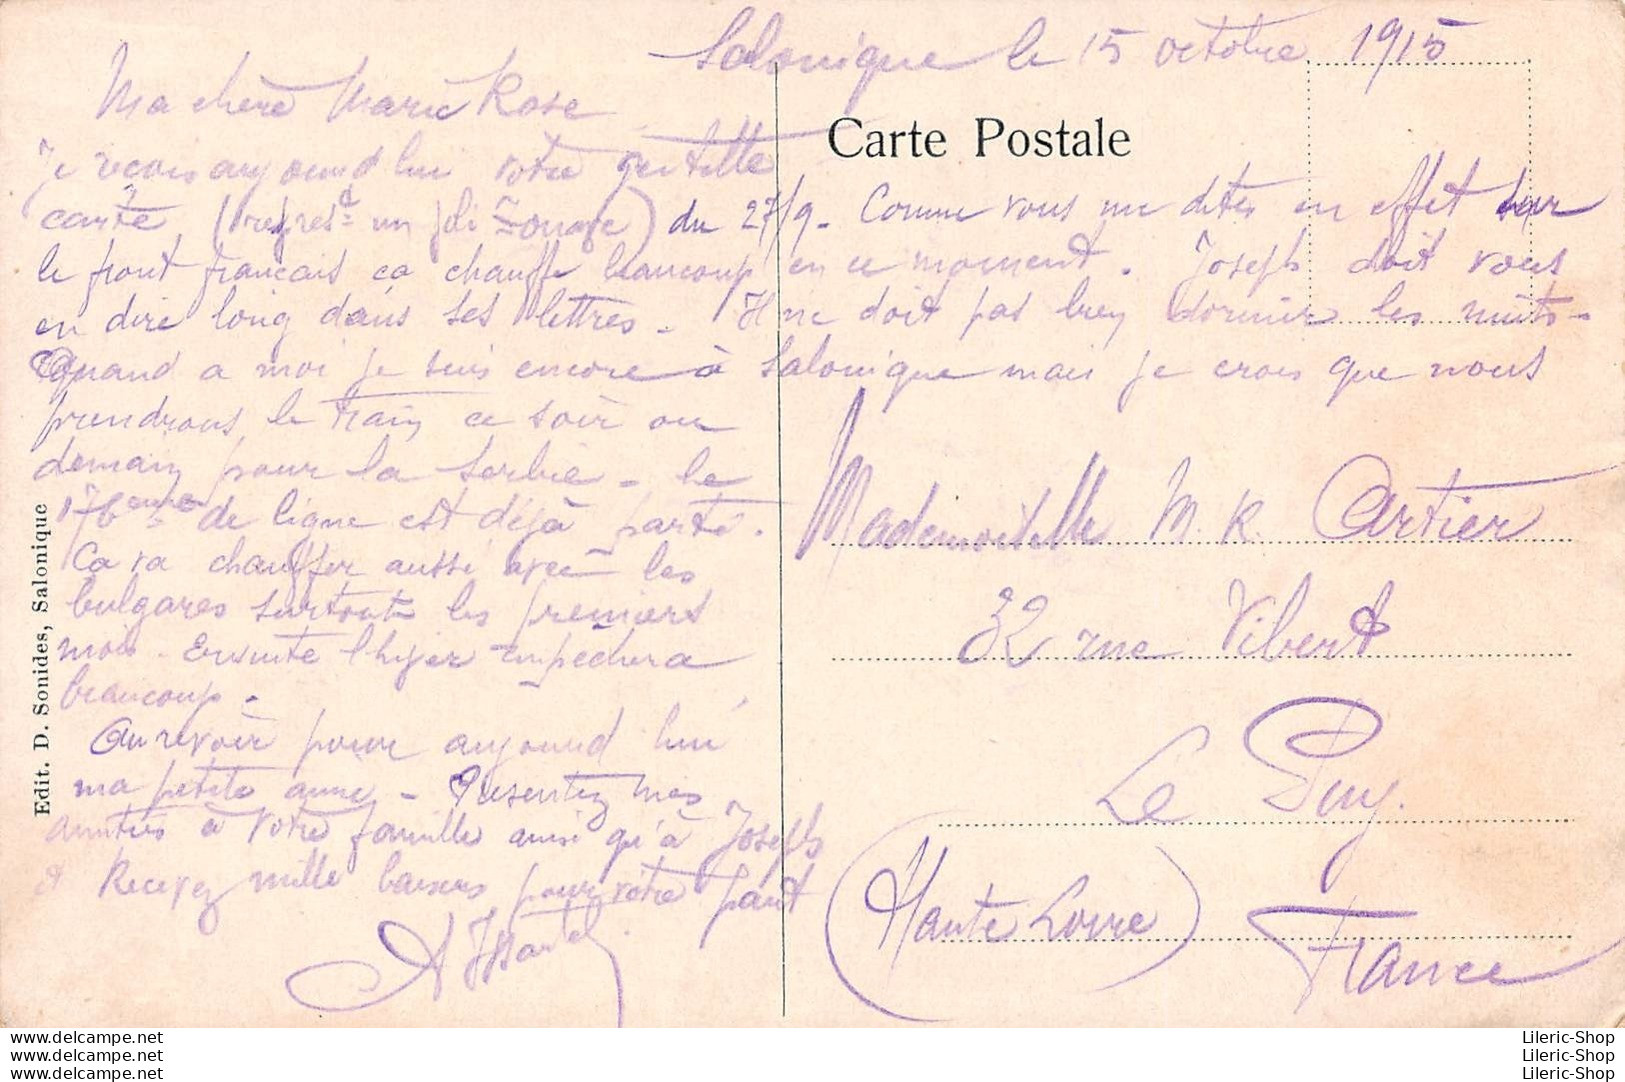 Salonique le 15 octobre 1915
Carte Postale
Ma chère Marie Rose
Je reçois aujourd hui votre gentille
carte (représ un joli zouave) du 27/9. Comme vous me dites en effet sur
le front français ca chauffe beaucoup en ce moment. Joseph doit vous
en dire long dans ses lettres. Il ne doit pas bien dormir les nuits.
Quand a moi je suis encore à Salonique mais je crois que nous
prendrons le train ce soir ou
demain pour la Serbie. Le
176eme de ligne est déjà parti.
Ca va chauffer aussi avec les
bulgares surtout les premiers
mois. Ensuite l'hiver empechera
beaucoup.
Au revoir pour aujourd hui
ma petite amie. Présentez mes
amitiés à votre famille ainsi qu'à Joseph
& Recevez mille baisers pour votre part
Mademoiselle M. R. Cartier
32 rue Vibert
Le Puy.
(Haute Loire)
France
Edit. D. Sonides, Salonique
Lileric-Shop
Lileric-Shop
Lileric-Shop